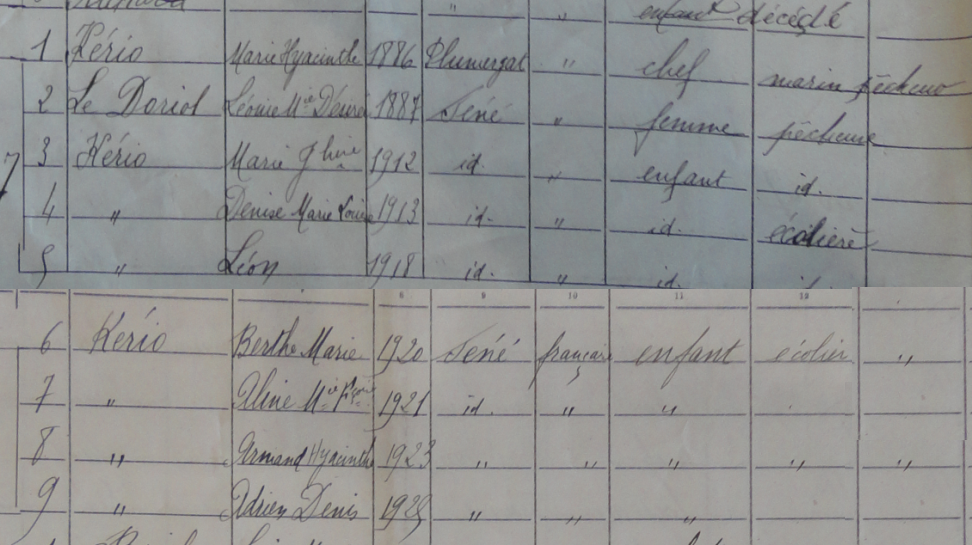 enfant décédé
1 Kério Marie Hyacinthe 1886 Plumergat " chef marin pêcheur
2 Le Doriol Léonie Mie Désirée 1887 Séné " femme pêcheuse
7 3 Kério Marie 1912 id. " enfant id.
4 " Denise Marie Louise 1913 id. " id. écolière
5 " Léon 1918 id. " id.
8 9 10 11 12
6 Kério Berthe Marie 1920 Séné française enfant écolier "
7 " Aline Mie 1921 id. " "
8 " Armand Hyacinthe 1923 " " " " "
9 " Adrien Denis 1925 " " "